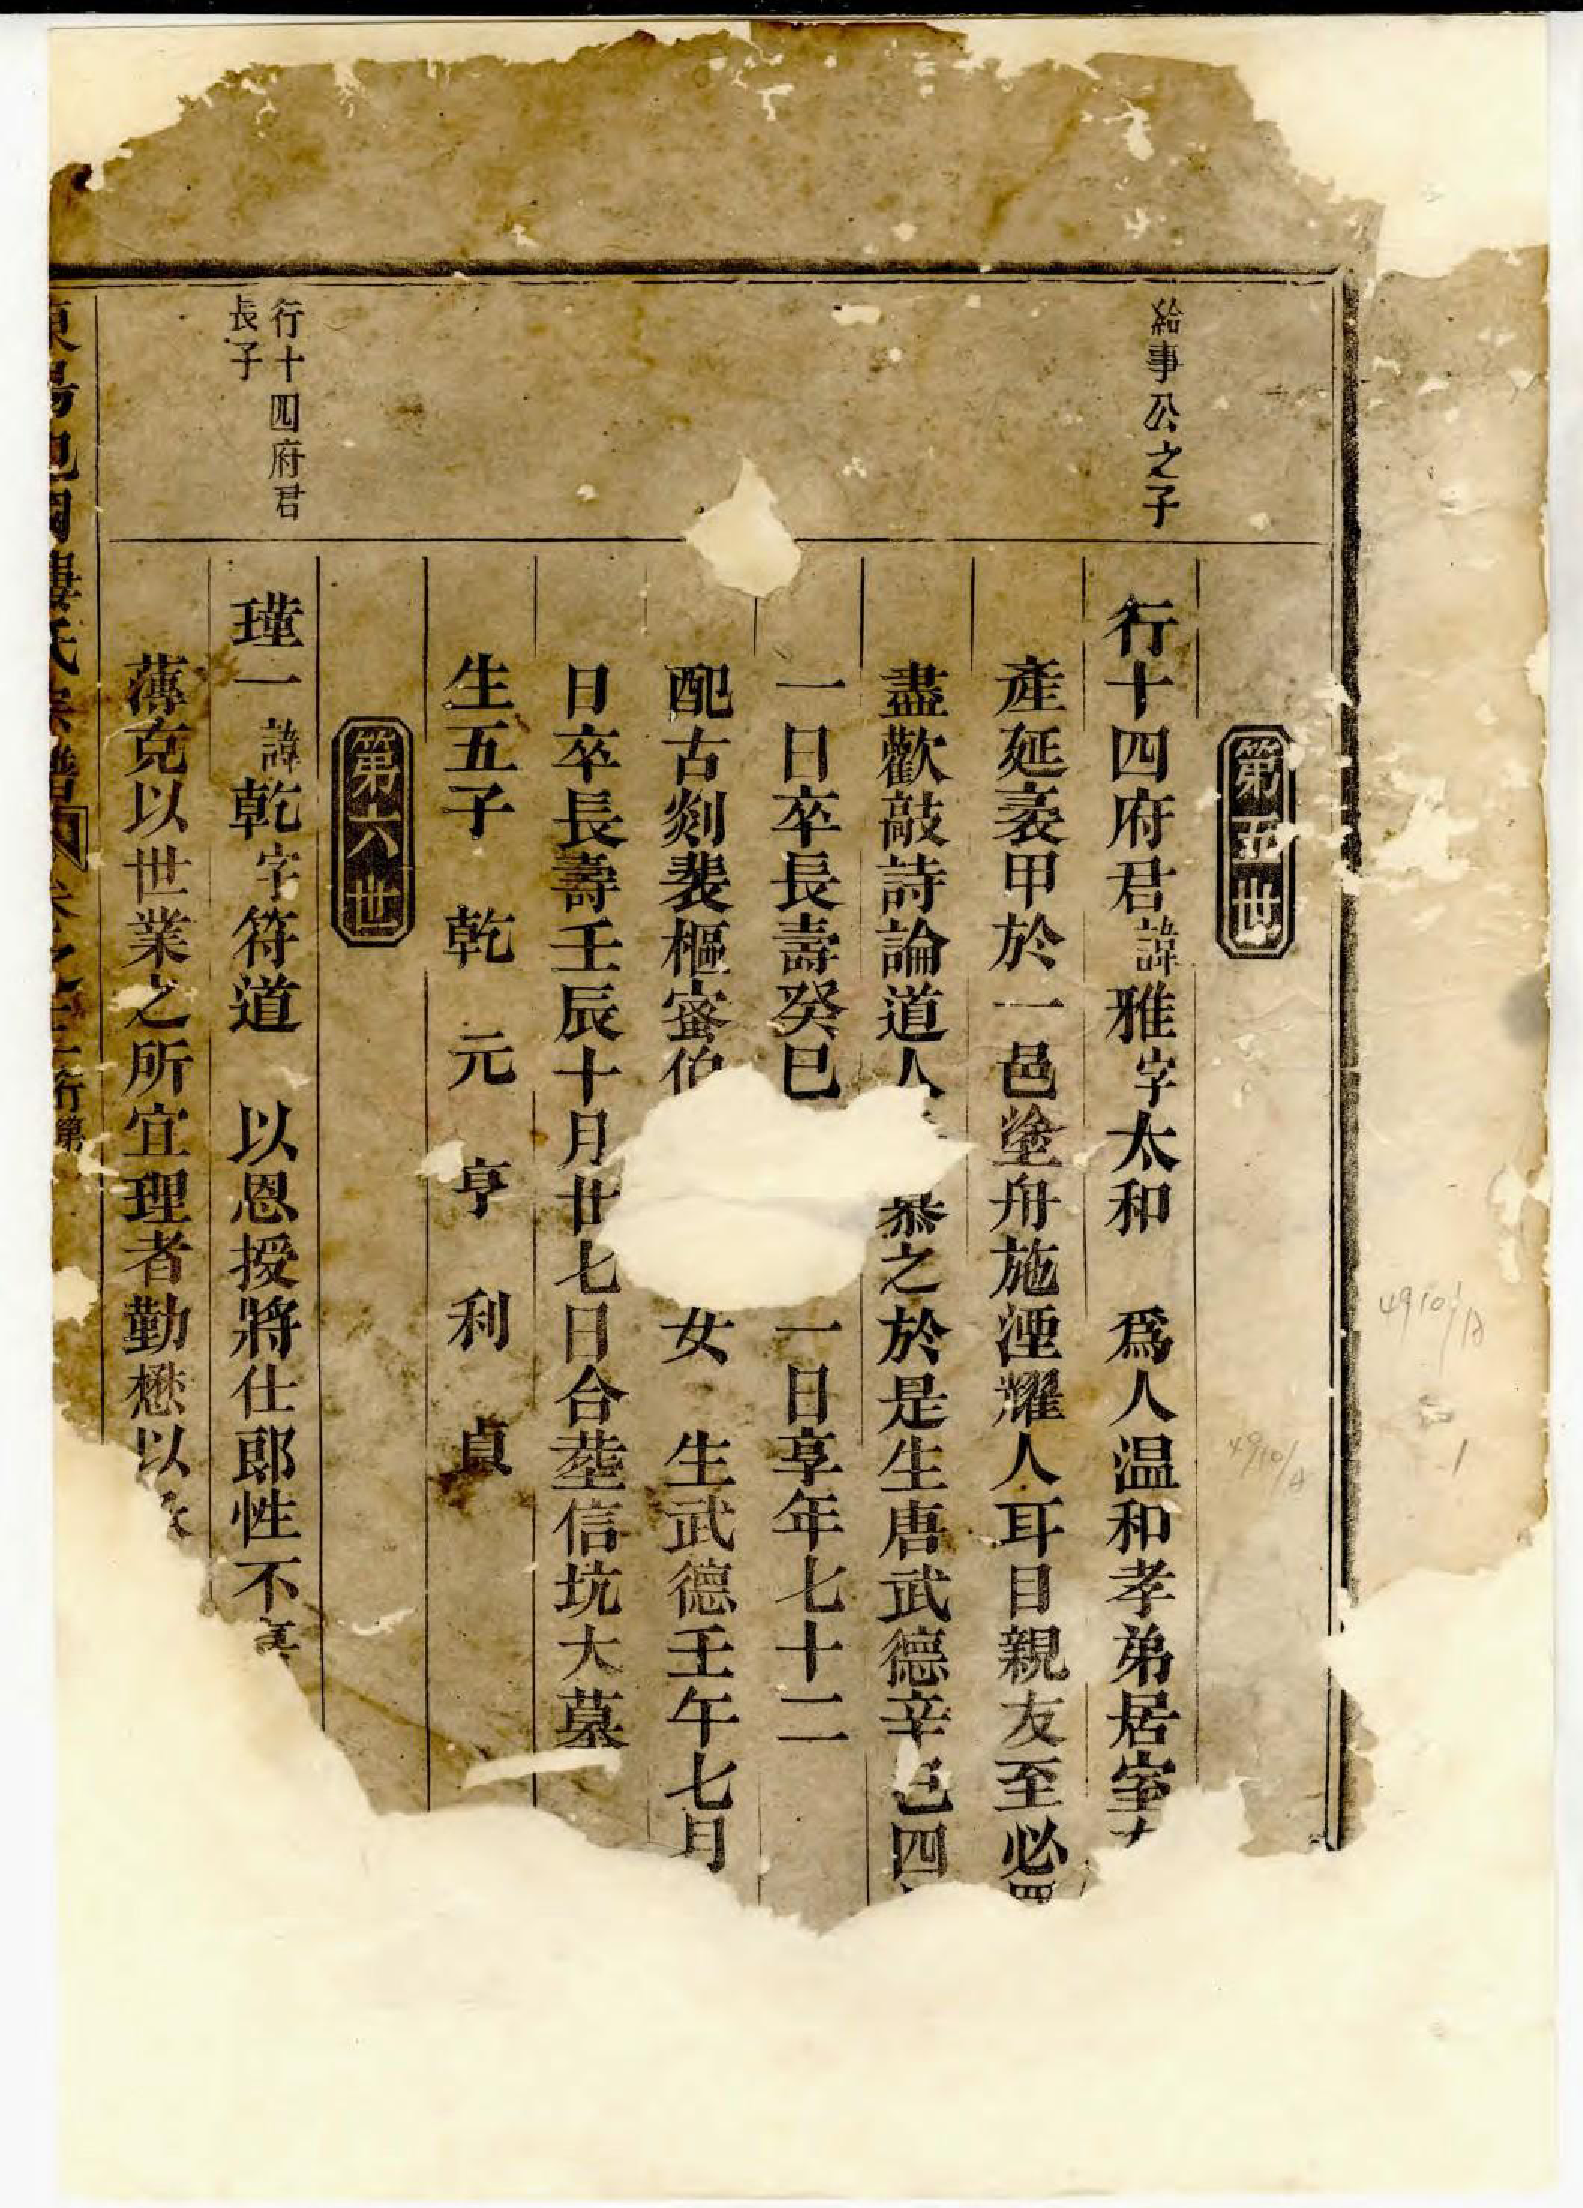 第五世
給事公之子
行十四府君諱雅字太和　爲人温和孝弟居室
產延袤甲於一邑塗舟施湮耀人耳目親友至必
盡歡敲詩論道人慕之於是生唐武德辛巳四
一日卒長壽癸巳一日享年七十二
配古剡裴樞蜜伯女　生武德壬午七月
日卒長壽壬辰十月廿七日合塟信坑大墓
生五子　乾　元　亨　利　貞
第六世
行十四府君
長子
瑾一諱乾字符道　以恩授將仕郎性不
薄克以世業之所宜理者勤懋以
婁氏宗譜卷之行第